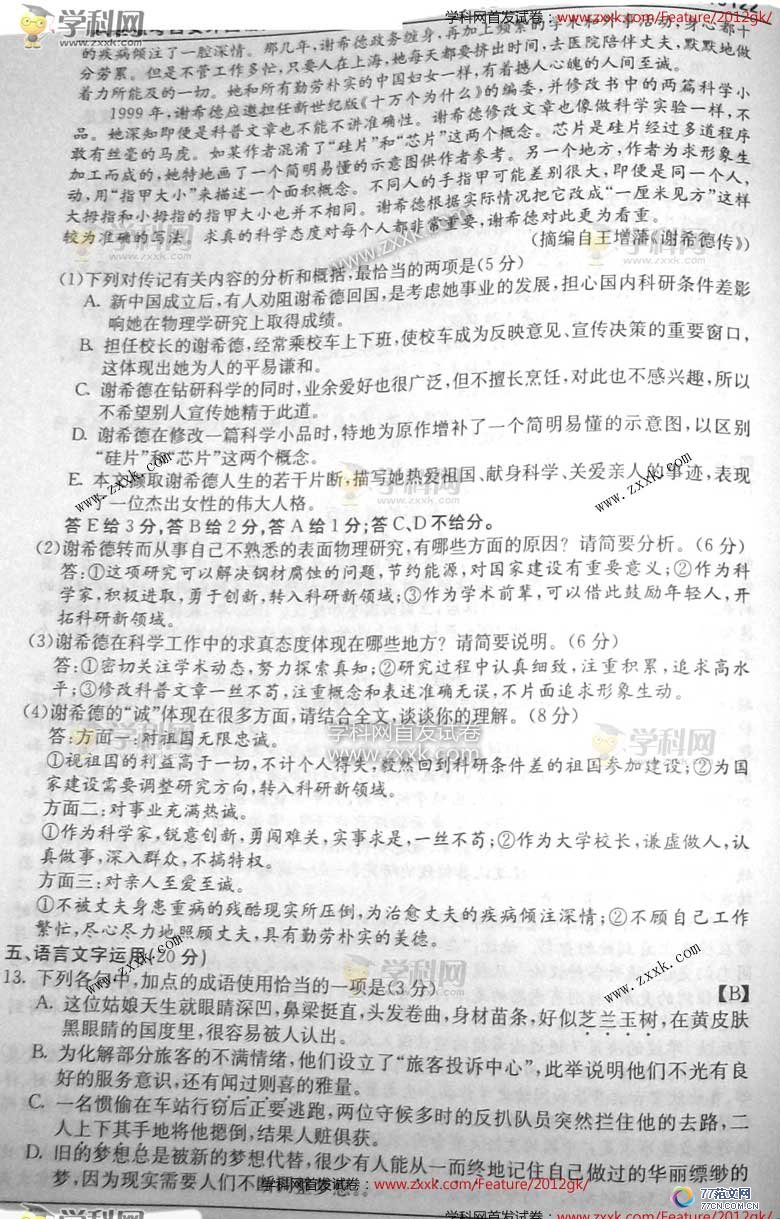 学科网首发试卷：www.zxxk.com/Feature/2012gk/
的疾病倾注了一腔深情。那几年，谢希德政务缠身，再加上频繁的学术和外事活动，身心都十
分劳累。但是不管工作多忙，只要人在上海，她每天都要挤出时间，去医院陪伴丈夫，默默地做
着力所能及的一切。她和所有勤劳朴实的中国妇女一样，有着撼人心魄的人间至诚。
1999年，谢希德应邀担任新世纪版《十万个为什么》的编委，并修改书中的两篇科学小
品。她深知即便是科普文章也不能不讲准确性。谢希德修改文章也像做科学实验一样，不
敢有丝毫的马虎。如某作者混淆了“硅片”和“芯片”这两个概念。芯片是硅片经过多道程序
加工而成的，她特地画了一个简明易懂的示意图供作者参考。另一个地方，作者为求形象生
动，用“指甲大小”来描述一个面积概念。不同人的手指甲可能差别很大，即便是同一个人，
大拇指和小拇指的指甲大小也并不相同。谢希德根据实际情况把它改成“一厘米见方”这样
较为准确的写法。求真的科学态度对每个人都非常重要，谢希德对此更为看重。
（摘编自王增藩《谢希德传》）
(1)下列对传记有关内容的分析和概括，最恰当的两项是(5分)
A. 新中国成立后，有人劝阻谢希德回国，是考虑她事业的发展，担心国内科研条件差影
响她在物理学研究上取得成绩。
B. 担任校长的谢希德，经常乘校车上下班，使校车成为反映意见、宣传决策的重要窗口，
这体现出她为人的平易谦和。
C. 谢希德在钻研科学的同时，业余爱好也很广泛，但不擅长烹饪，对此也不感兴趣，所以
不希望别人宣传她精于此道。
D. 谢希德在修改一篇科学小品时，特地为原作增补了一个简明易懂的示意图，以区别
“硅片”和“芯片”这两个概念。
E. 本文撷取谢希德人生的若干片断，描写她热爱祖国、献身科学、关爱亲人的事迹，表现
了一位杰出女性的伟大人格。
答E给3分，答B给2分，答A给1分；答C、D不给分。
(2)谢希德转而从事自己不熟悉的表面物理研究，有哪些方面的原因？请简要分析。(6分)
答：①这项研究可以解决钢材腐蚀的问题，节约能源，对国家建设有重要意义；②作为科
学家，积极进取，勇于创新，转入科研新领域；③作为学术前辈，可以借此鼓励年轻人，开
拓科研新领域。
(3)谢希德在科学工作中的求真态度体现在哪些地方？请简要说明。(6分)
答：①密切关注学术动态，努力探索真知；②研究过程中认真细致，注重积累，追求高水
平；③修改科普文章一丝不苟，注重概念和表述准确无误，不片面追求形象生动。
(4)谢希德的“诚”体现在很多方面，请结合全文，谈谈你的理解。(8分)
答：方面一：对祖国无限忠诚。
①视祖国的利益高于一切，不计个人得失，毅然回到科研条件差的祖国参加建设；②为国
家建设需要调整研究方向，转入科研新领域。
方面二：对事业充满热诚。
①作为科学家，锐意创新，勇闯难关，实事求是，一丝不苟；②作为大学校长，谦虚做人，认
真做事，深入群众，不搞特权。
方面三：对亲人至爱至诚。
①不被丈夫身患重病的残酷现实所压倒，为治愈丈夫的疾病倾注深情；②不顾自己工作
繁忙，尽心尽力地照顾丈夫，具有勤劳朴实的美德。
五、语言文字运用(20分)
13. 下列各句中，加点的成语使用恰当的一项是(3分) 【B】
A. 这位姑娘天生就眼睛深凹，鼻梁挺直，头发卷曲，身材苗条，好似芝兰玉树，在黄皮肤
黑眼睛的国度里，很容易被人认出。
B. 为化解部分旅客的不满情绪，他们设立了“旅客投诉中心”，此举说明他们不光有良
好的服务意识，还有闻过则喜的雅量。
C. 一名惯偷在车站行窃后正要逃跑，两位守候多时的反扒队员突然拦住他的去路，二
人上下其手地将他摁倒，结果人赃俱获。
D. 旧的梦想总是被新的梦想代替，很少有人能从一而终地记住自己做过的华丽缥缈的
梦，因为现实需要人们不断
学科网首发试卷：www.zxxk.com/Feature/2012gk/
学科网首发试卷：www.zxxk.com/Feature/2012gk/
77范文网
77CN.COM.CN